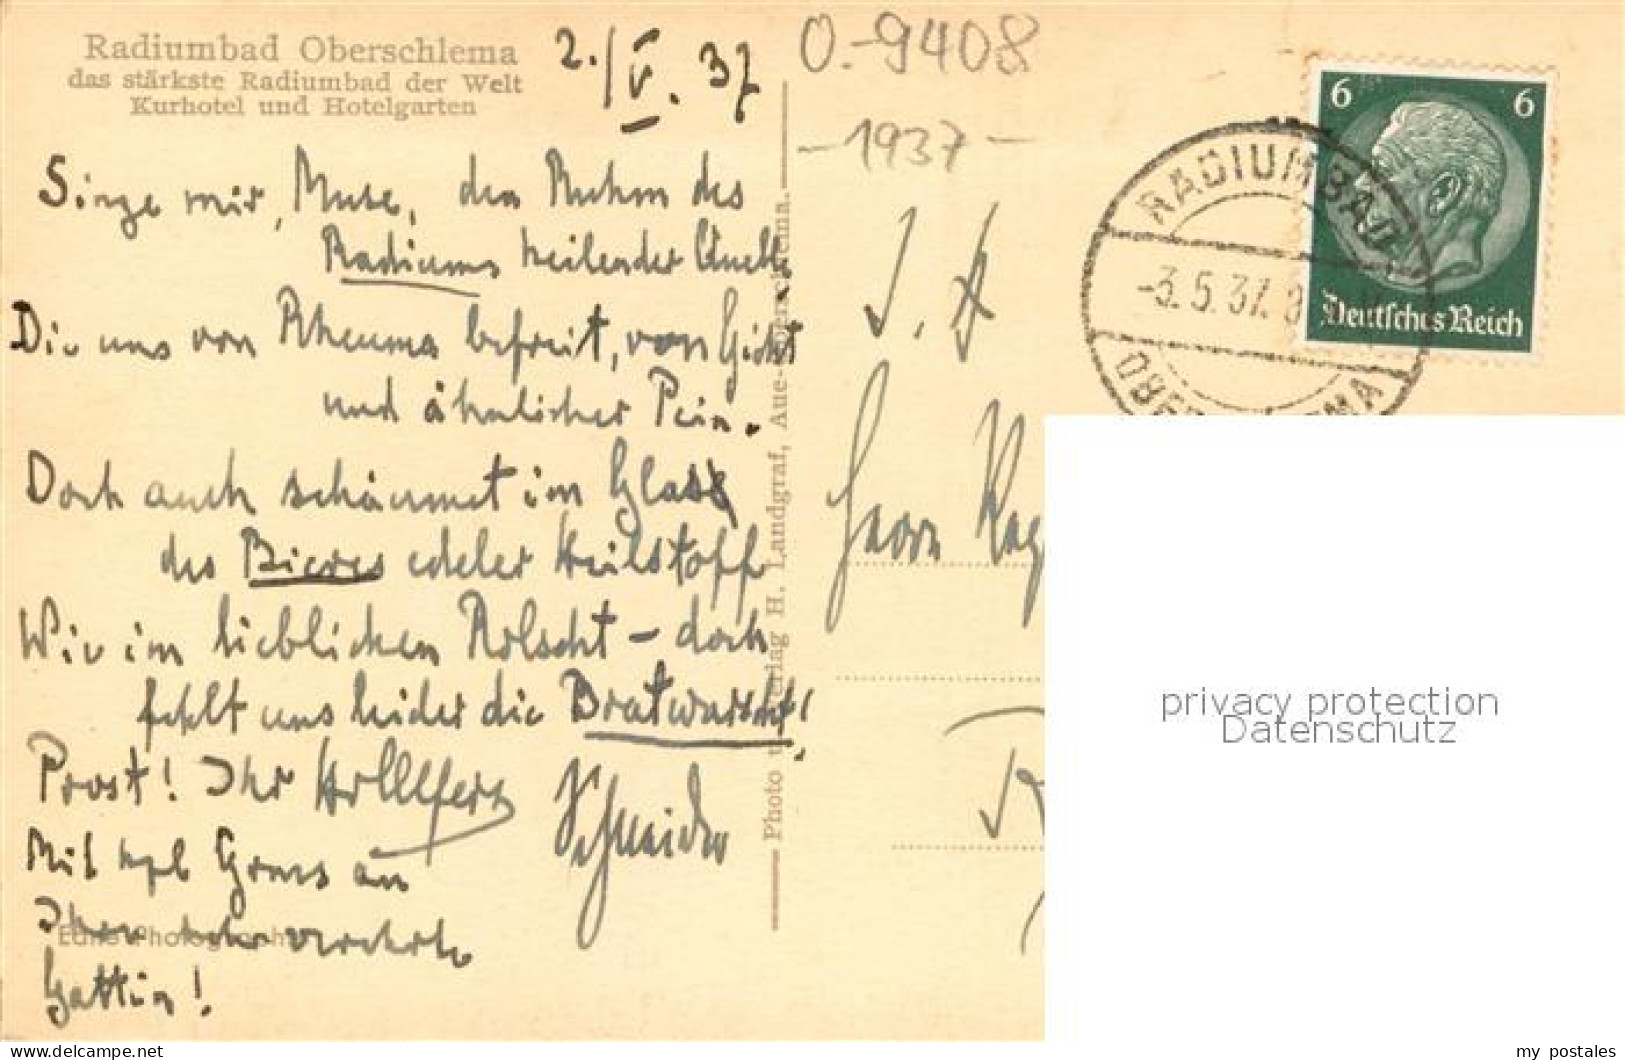 Radiumbad Oberschlema
das stärkste Radiumbad der Welt
Kurhotel und Hotelgarten
2./V. 37
O.-9408
-1937-
Singe mir, Muse, den Ruhm des
Radiums heilender Quelle,
Die uns von Rheuma befreit, von Gicht
und ähnlicher Pein.
Doch auch schäumet im Glas
des Bieres edeler Heilstoff
Wie im lieblichen Rolscht – doch
fehlt uns leider die Bratwurscht!
Prost! Ihr
Schneider
Mit Gruss an
Ihre sehr verehrte
Gattin!
Echte Photographie
Photo u. Verlag H. Landgraf, Aue-Oberschlema.
S. H
Herrn
RADIUMBAD
-3.5.37.8
OBERSCHLEMA
6 6
Deutsches Reich
privacy protection
Datenschutz
my postales
https://www.delcampe.net